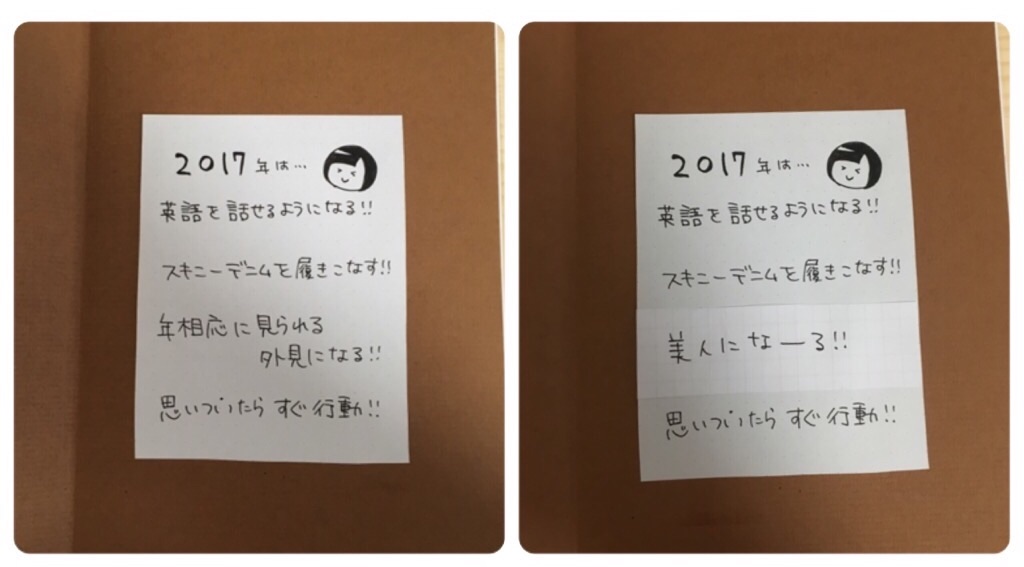 2017年は…
英語を話せるようになる!!
スキニーデニムを履きこなす!!
年相応に見られる
外見になる!!
思いついたらすぐ行動!!
2017年は…
英語を話せるようになる!!
スキニーデニムを履きこなす!!
美人になーる!!
思いついたらすぐ行動!!